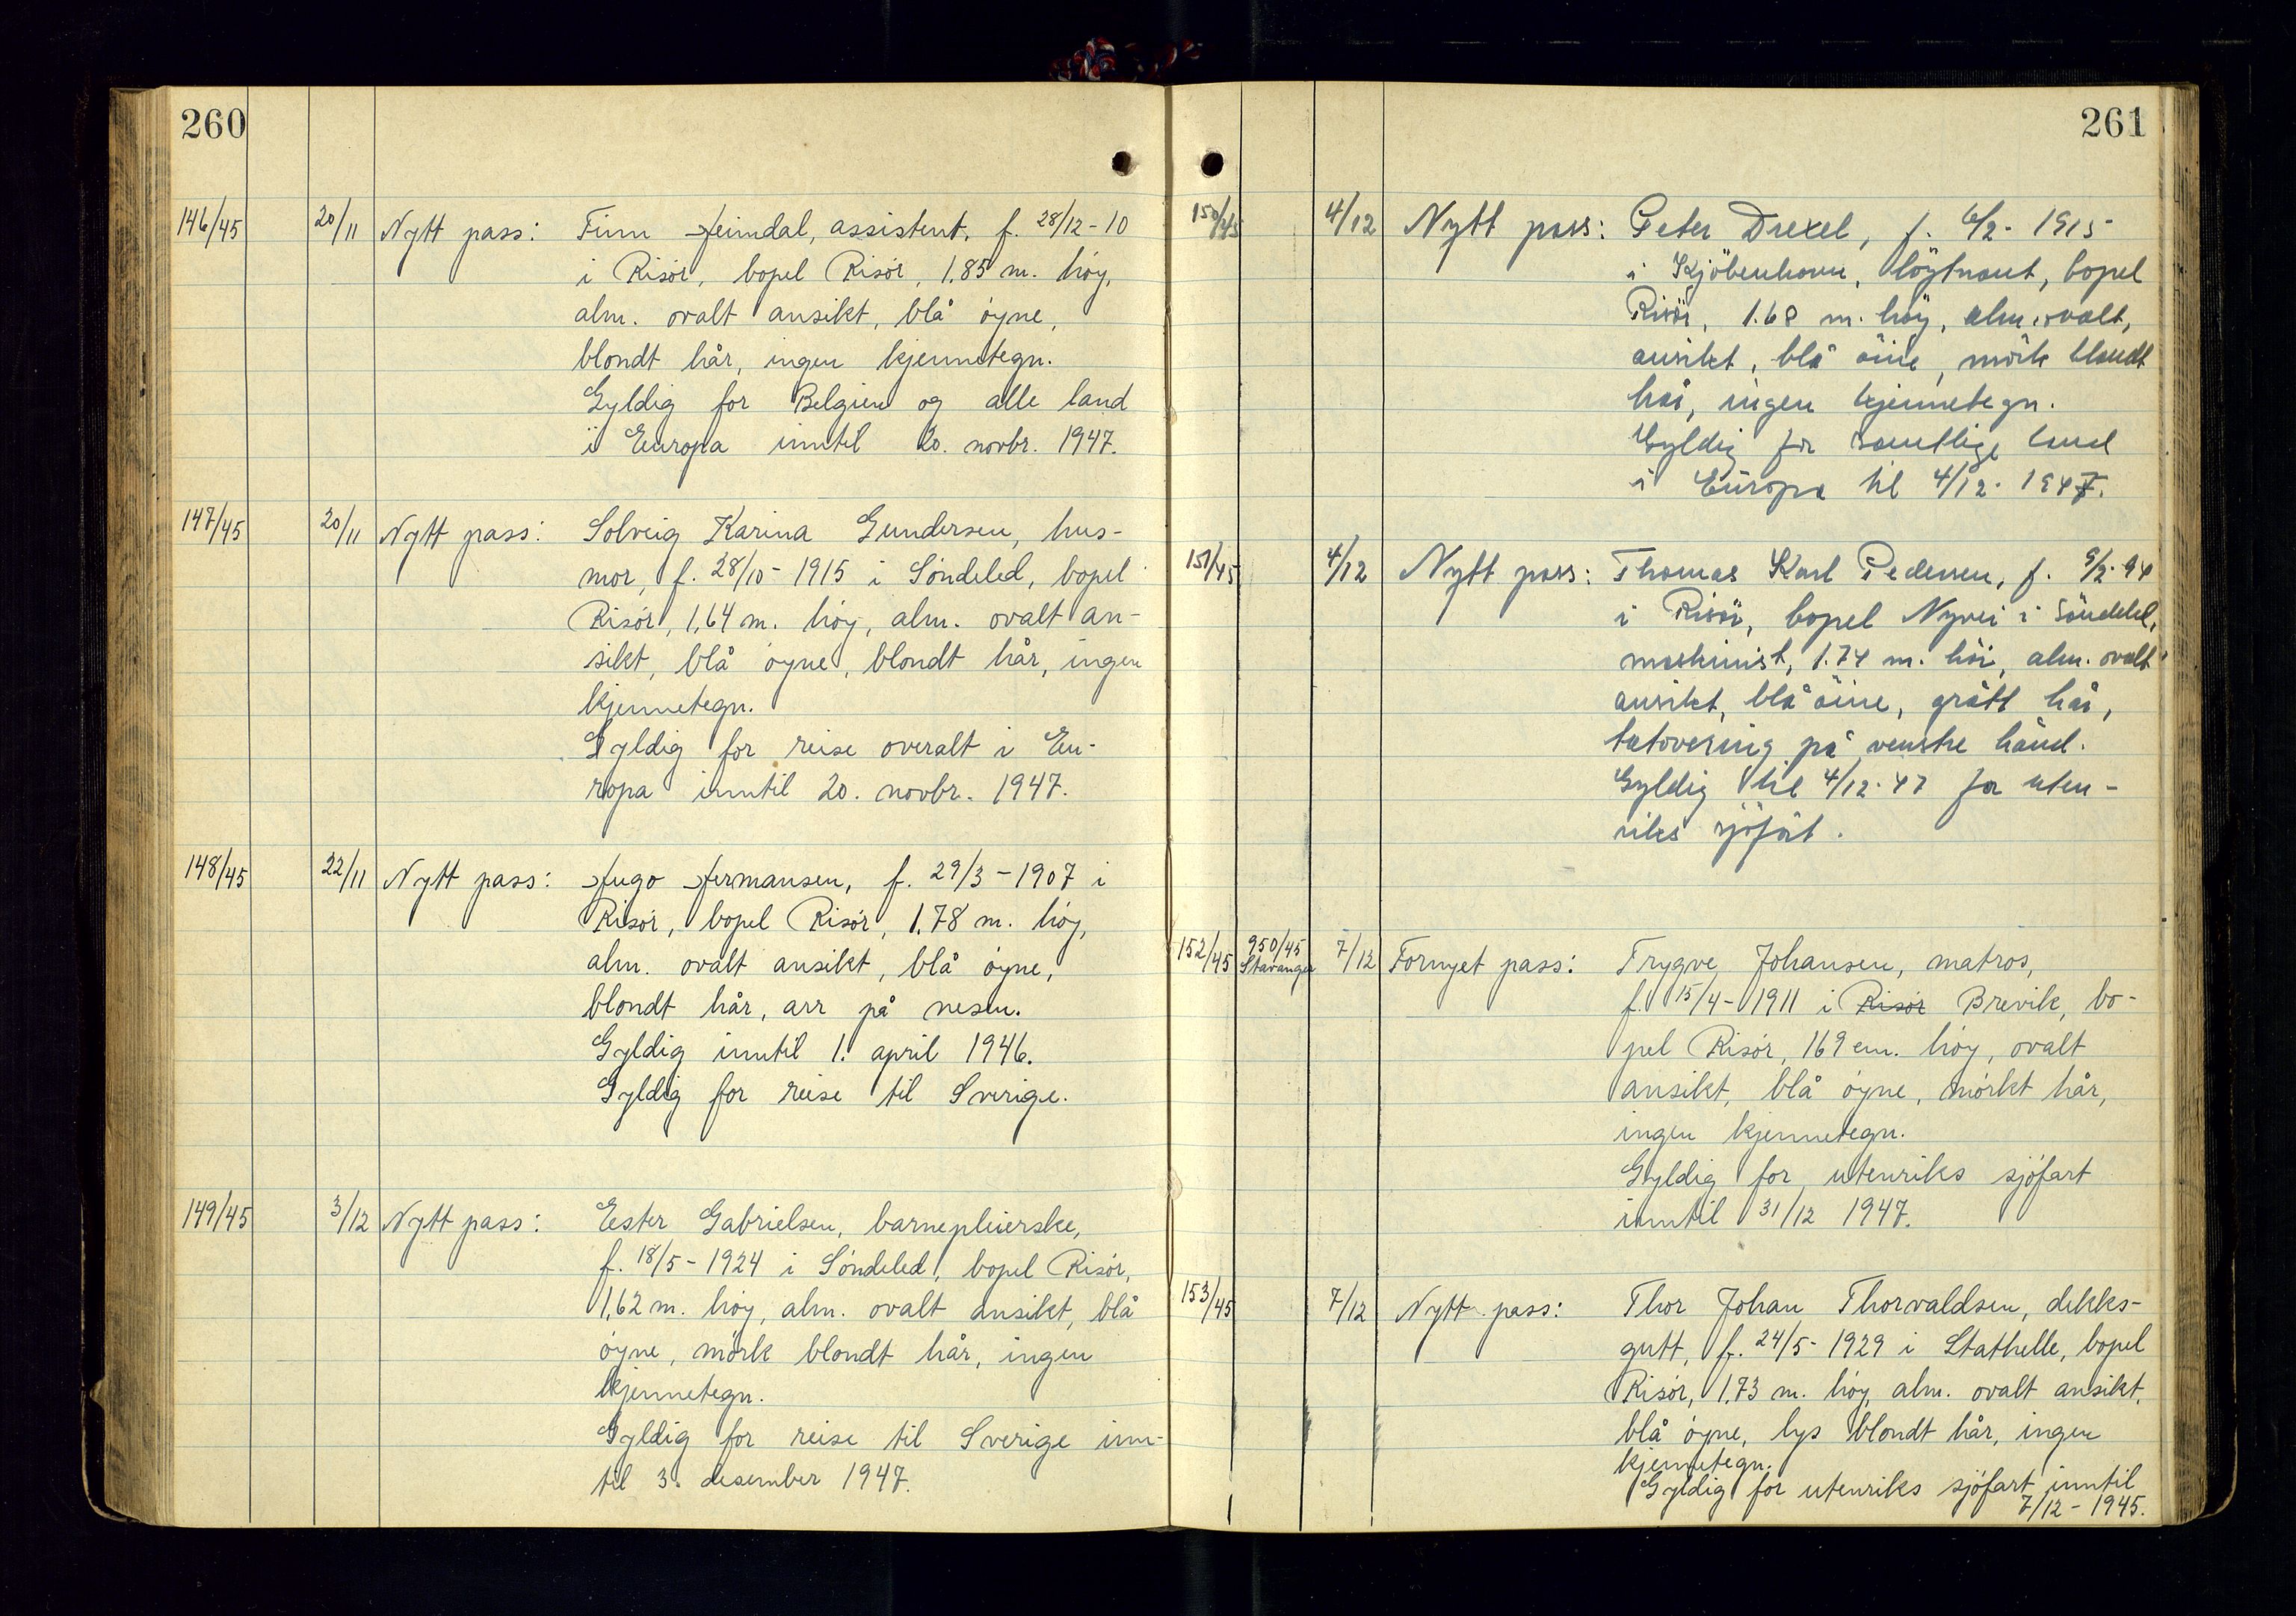 260
146/45 20/11 Nytt pass: Finn Heimdal, assistent, f. 28/12-10
i Risør, bopel Risør, 1.85 m. høy,
alm. ovalt ansikt, blå øyne,
blondt hår, ingen kjennetegn.
Gyldig for Belgien og alle land
i Europa inntil 20. novbr. 1947.
147/45 20/11 Nytt pass: Solveig Karina Gundersen, hus-
mor, f. 28/10-1915 i Søndeled, bopel
Risør, 1,64 m. høy, alm. ovalt an-
sikt, blå øyne, blondt hår, ingen
kjennetegn.
Gyldig for reise overalt i Eu-
ropa inntil 20. novbr. 1947.
148/45 22/11 Nytt pass: Hugo Hermansen, f. 29/3-1907 i
Risør, bopel Risør, 1.78 m. høy,
alm. ovalt ansikt, blå øyne,
blondt hår, arr på nesen.
Gyldig inntil 1. april 1946.
Gyldig for reise til Sverige.
149/45 3/12 Nytt pass: Ester Gabrielsen, barnepleierske,
f. 18/5-1924 i Søndeled, bopel Risør,
1,62 m. høy, alm. ovalt ansikt, blå
øyne, mørk blondt hår, ingen
kjennetegn.
Gyldig for reise til Sverige inn-
til 3. desember 1947.
261
150/45 4/12 Nytt pass: Peter Drexel, f. 6/2-1915
i Kjöbenhavn, löytnant, bopel
Risör, 1.68 m. höy, alm. ovalt,
ansikt, blå öine, mörk blondt
hår, ingen kjennetegn.
Gyldig for samtlige land
i Europa til 4/12-1947.
151/45 4/12 Nytt pass: Thomas Karl Pedersen, f. 9/2-94
i Risör, bopel Nyvei i Söndeled,
maskinist, 1.74 m. höi, alm. ovalt
ansikt, blå öine, grått hår,
tatovering på venstre hånd.
Gyldig til 4/12-47 for uten-
riks sjöfart.
152/45 950/45 Stavanger 7/12 Fornyet pass: Trygve Johansen, matros,
f. 15/4-1911 i Risør Brevik, bo-
pel Risør, 169 cm. høy, ovalt
ansikt, blå øyne, mørkt hår,
ingen kjennetegn.
Gyldig for utenriks sjøfart
inntil 31/12 1947.
153/45 7/12 Nytt pass: Thor Johan Thorvaldsen, dekks-
gutt, f. 24/5-1929 i Stathelle, bopel
Risør, 1,73 m. høy, alm. ovalt ansikt,
blå øyne, lys blondt hår, ingen
kjennetegn.
Gyldig for utenriks sjøfart inntil
7/12-1945.